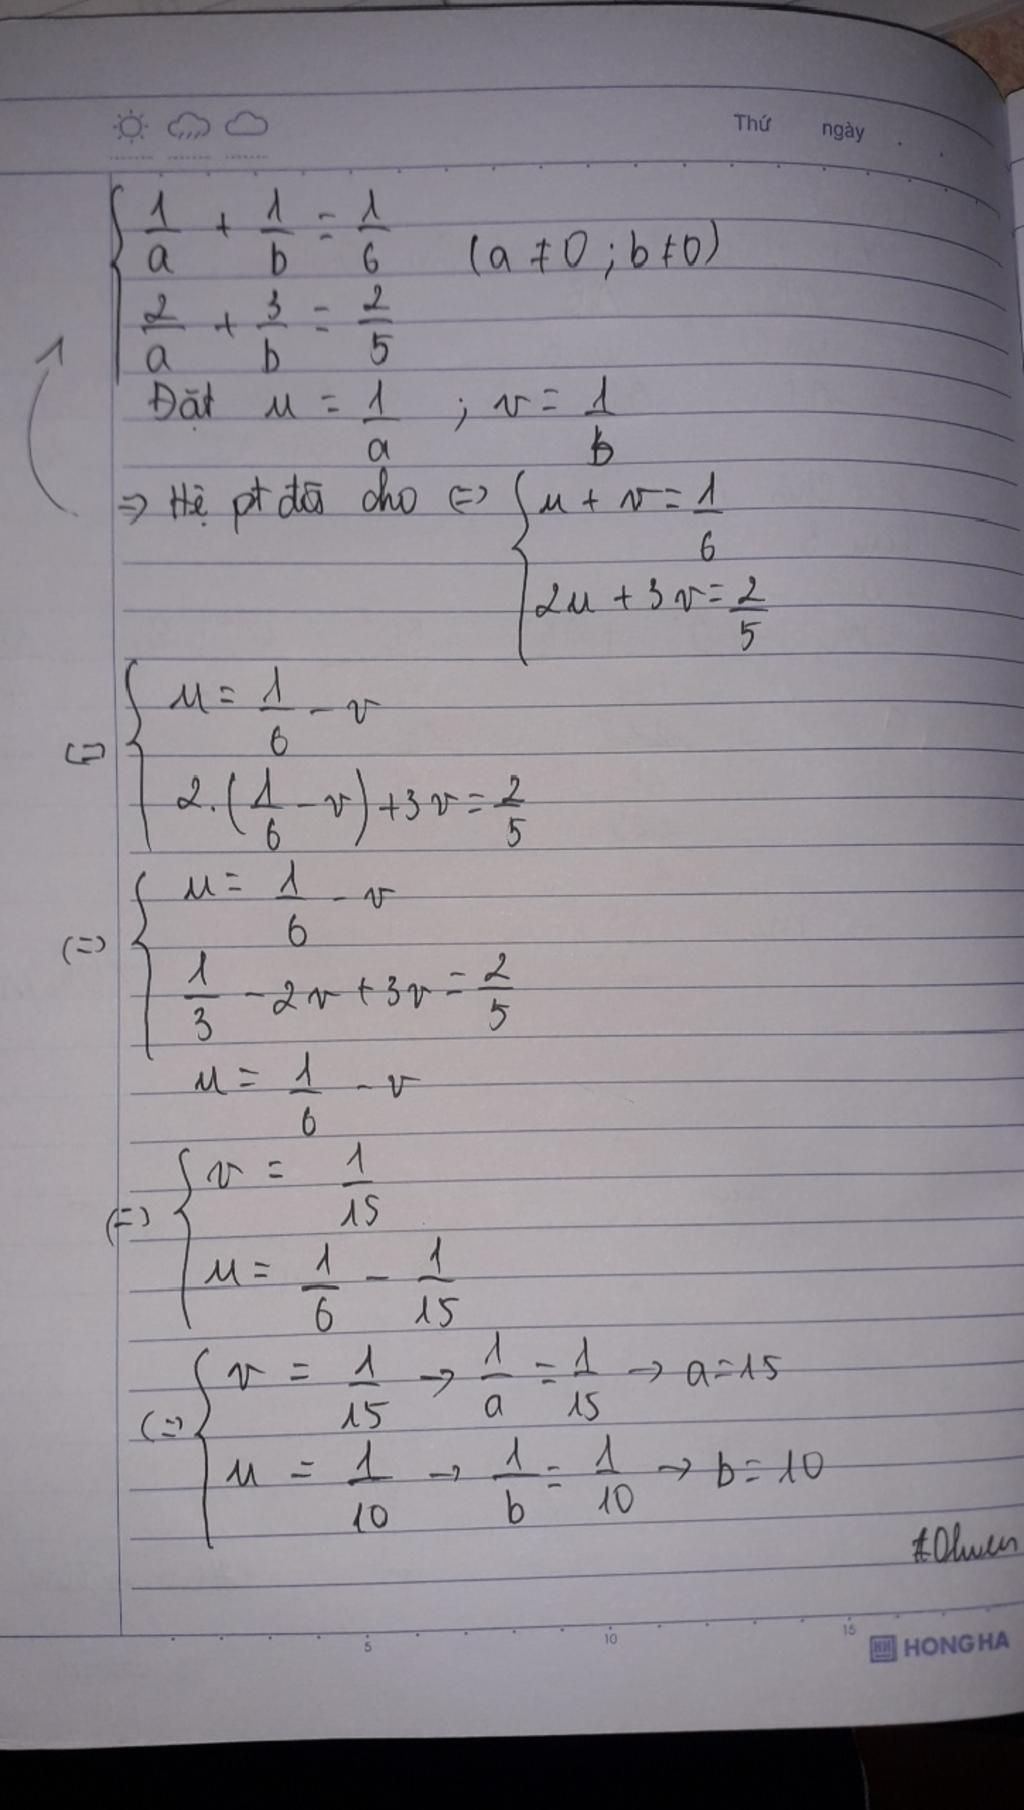 Thứ ngày
1/a + 1/b = 1/6 (a ≠ 0 ; b ≠ 0)
2/a + 3/b = 2/5
1
Đặt u = 1/a ; v = 1/b
=> Hệ pt đã cho <=> { u + v = 1/6
2u + 3v = 2/5
<=> { u = 1/6 - v
2.(1/6 - v) + 3v = 2/5
<=> { u = 1/6 - v
1/3 - 2v + 3v = 2/5
u = 1/6 - v
<=> { v = 1/15
u = 1/6 - 1/15
<=> { v = 1/15 → 1/a = 1/15 → a = 15
u = 1/10 → 1/b = 1/10 → b = 10
5 10 15
HH HONG HA